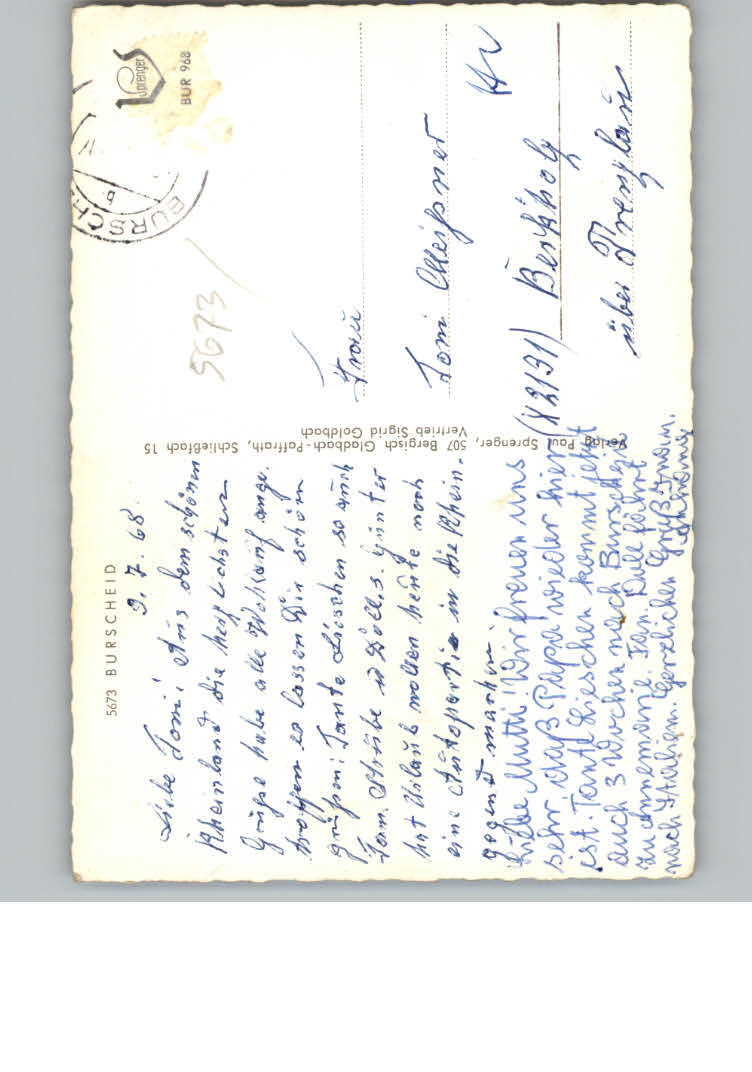 5673 BURSCHEID
9.7.68.
Liebe Toni! Aus dem schönen
Rheinland die herzlichsten
Grüße habe alle
hoffen es lassen Dir schön
grüßen: Tante Lieschen so auch
Fam. Strube u Günter
hat Urlaub wollen heute noch
eine Autopartie in die Rhein-
gegend machen.
Liebe Mutti! Wir freuen uns
sehr daß Papa wieder hier
ist. Tante Lieschen kommt jetzt
auch 3 Wochen nach Burscheid
zu Annemarie. Fam. fährt
nach Italien. Herzlichen Gruß
Verlag Paul Sprenger, 507 Bergisch Gladbach-Paffrath, Schließfach 15
Vertrieb Sigrid Goldbach
Sprenger
BUR 968
BURSCH
b
5673
Frau
Toni Meißner
(X 2131) Berkholz
über Prenzlau